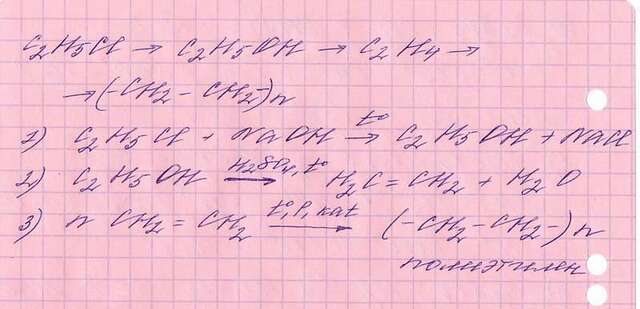 C₂H₅Cl → C₂H₅OH → C₂H₄ →
→ (-CH₂-CH₂-)n
1) C₂H₅Cl + NaOH t°→ C₂H₅OH + NaCl
2) C₂H₅OH H₂SO₄, t°→ H₂C=CH₂ + H₂O
3) n CH₂=CH₂ t°, P, kat→ (-CH₂-CH₂-)n
полиэтилен